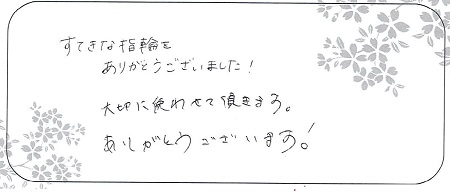 すてきな指輪を
ありがとうございました!
大切に使わせて頂きます。
ありがとうございます!